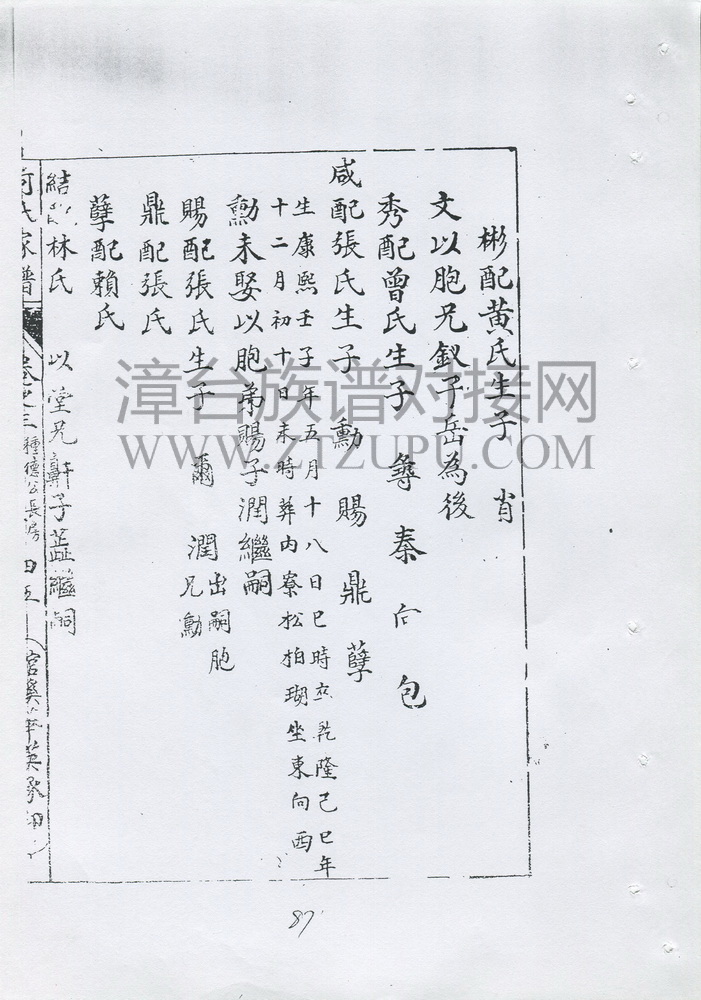 彬配黄氏生子 肖
文以胞兄釵子岳為後
秀配曾氏生子 彝 秦 包
咸配張氏生子 勳 賜 鼎 孽
生康熙壬子年五月十八日巳時卒乾隆己巳年
十二月初十日未時葬内寮松柏瑚坐東向酉
勳未娶以胞弟賜子潤繼嗣
賜配張氏生子 爾 潤出嗣胞兄勳
鼎配張氏
孽配賴氏
結 林氏 以堂兄 子 繼嗣
氏家譜 卷之三 種德公長房 四五
漳台族谱对接网
WWW.ZTZUPU.COM
87